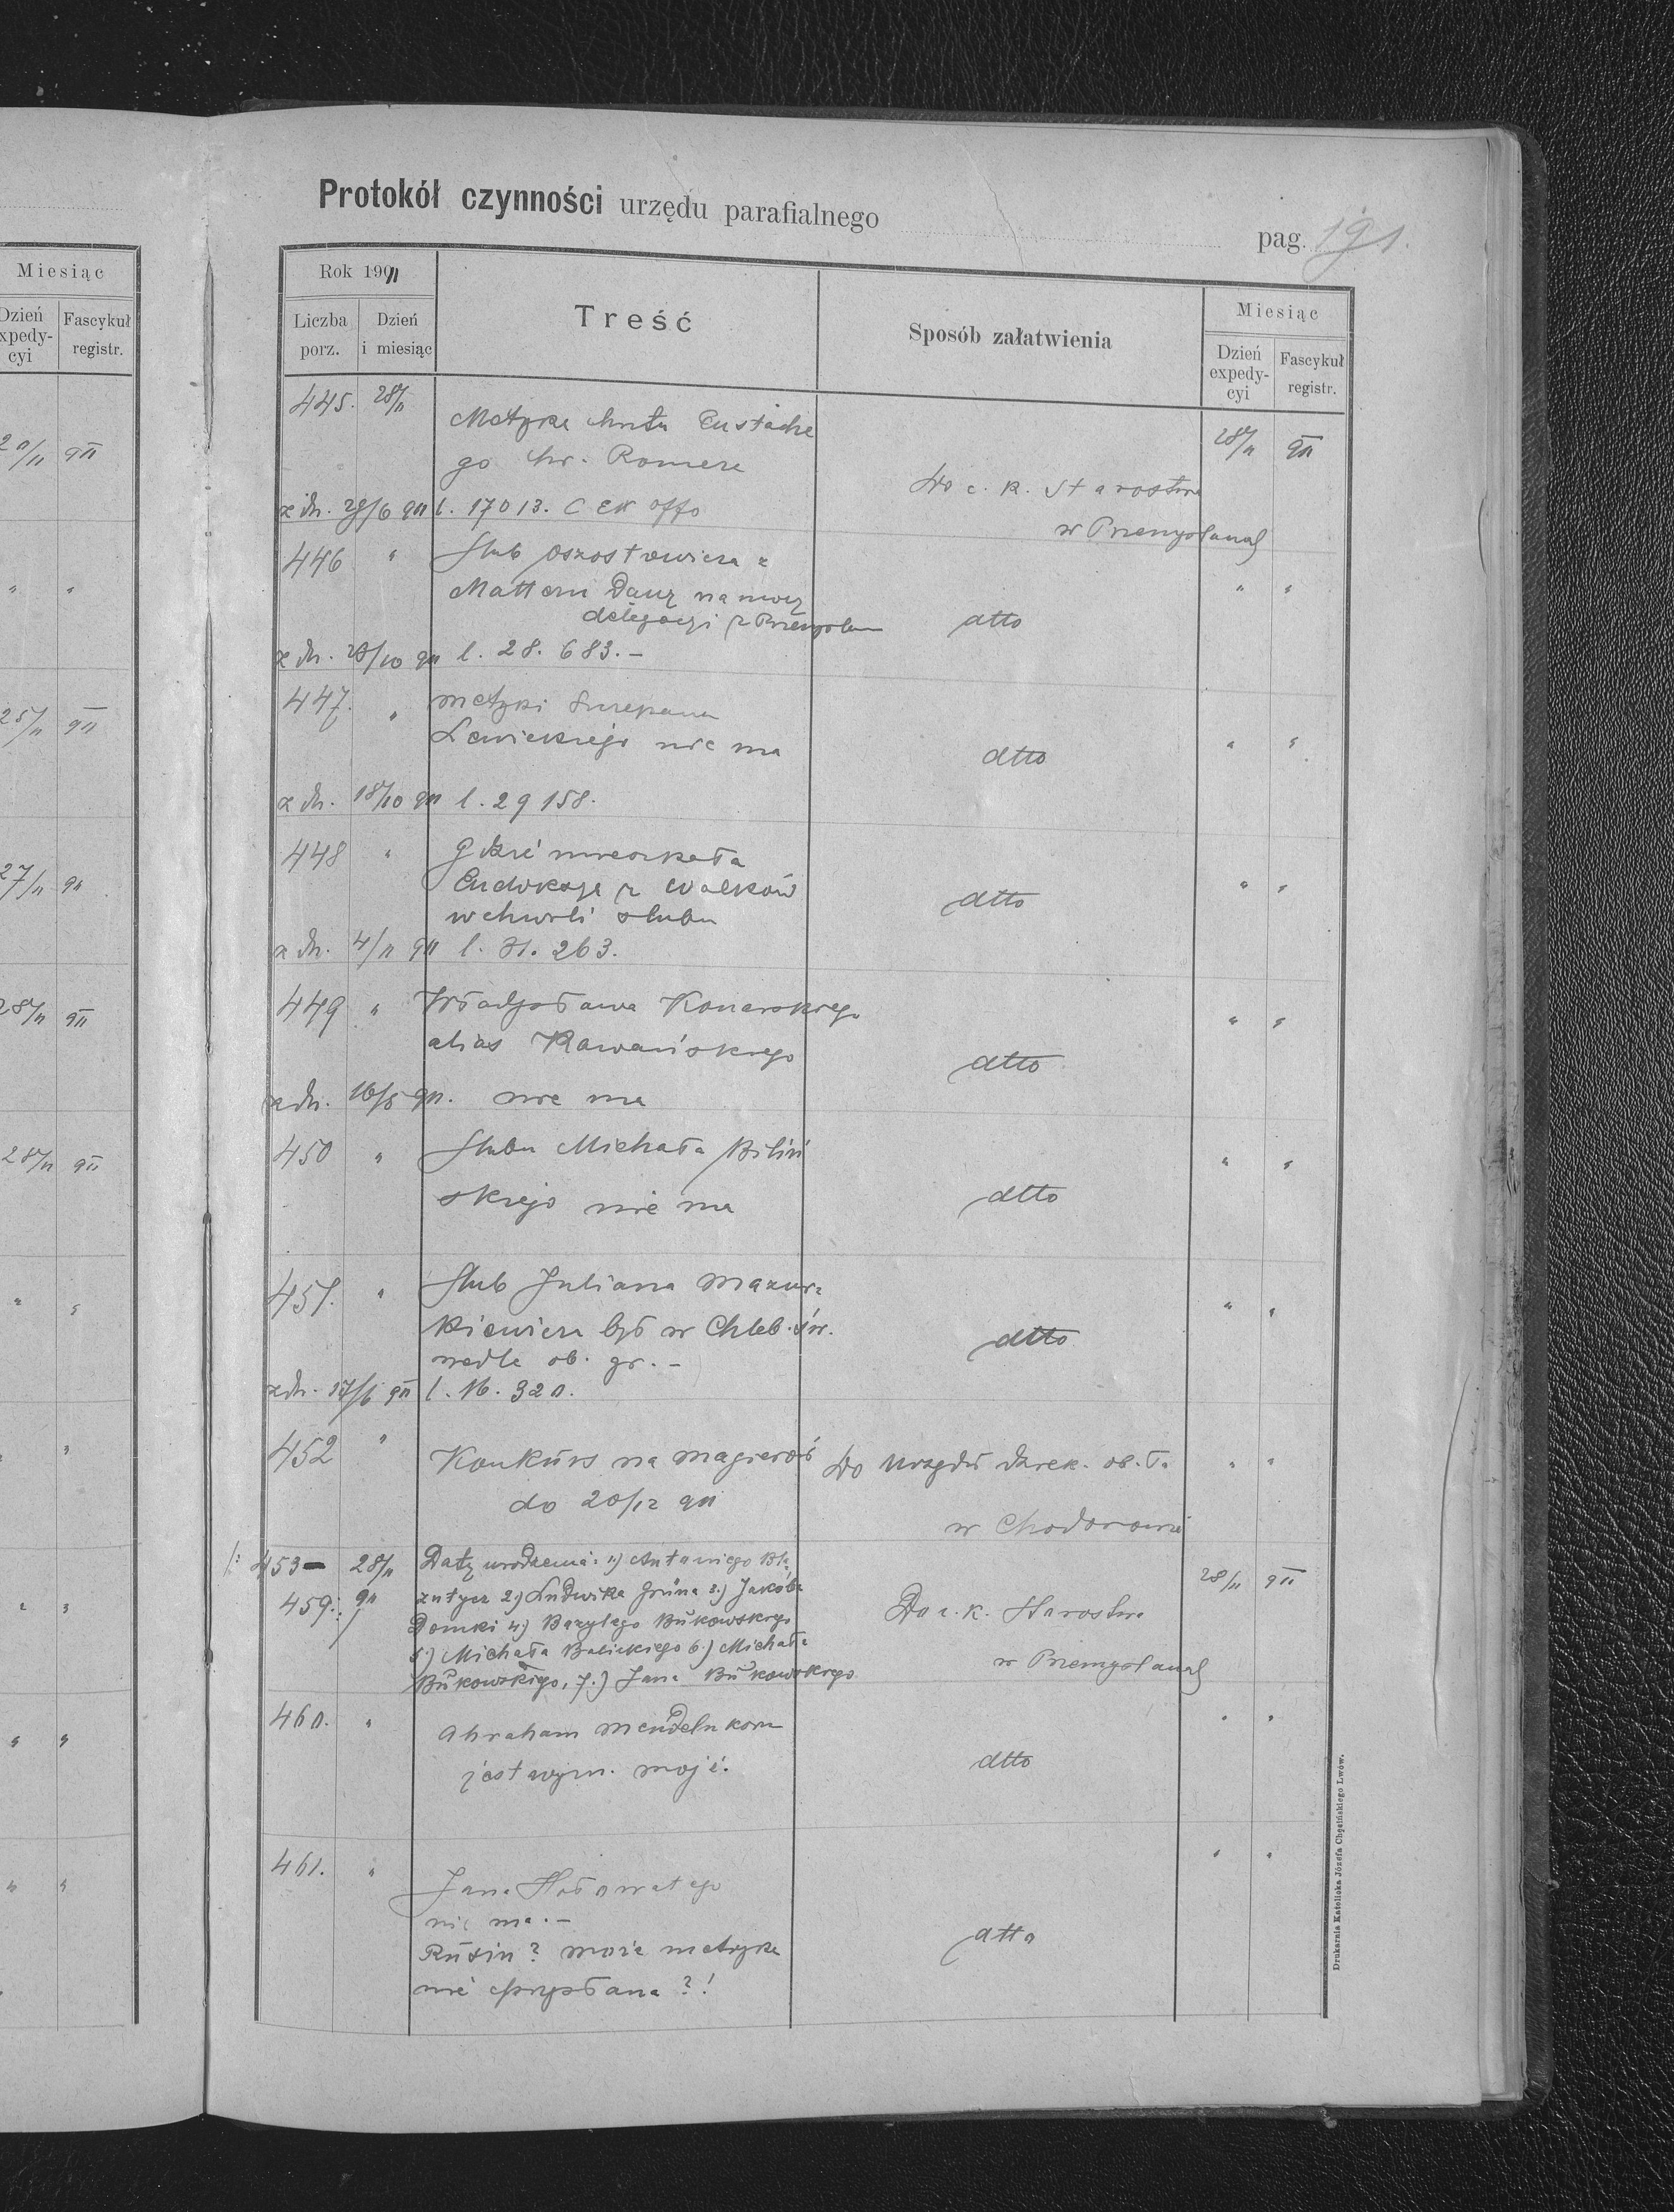 Protokół czynności urzędu parafialnego
pag. 191.
Miesiąc
Dzień expedycyi
Fascykuł registr.
20/11 911
" "
25/11 911
27/11 911
28/11 911
28/11 911
" "
Rok 1911
Liczba porz.
Dzień i miesiąc
Treść
Sposób załatwienia
Miesiąc
Dzień expedycyi
Fascykuł registr.
445. 28/11
Metryka chrztu Eustache
go hr. Romera
z dn. 29/6 911 l. 17013. C ex offo
Do c. k. Starostwa
w Przemyślanach
28/11 911
446 "
Ślub Oszostowicza z
Mattem Dauz na mocy
delegacyi z Przemyślan
z dn. 28/10 911 l. 28.683.-
dtto
" "
447. "
metryki Szczepana
Lewickiego nie ma
z dn. 18/10 911 l. 29158.
dtto
" "
448 "
gdzie mieszkała
Eudoksya z Wołków
w chwili ślubu
z dn. 4/11 911 l. 31.263.
dtto
" "
449 "
Władysława Konarskiego
alias Kawańskiego
z dn. 16/5 911. nie ma
dtto
" "
450 "
Ślubu Michała Biliń
skiego nie ma
dtto
" "
451. "
Ślub Juliana Mazur=
kiewicza był w Chleb. św.
wedle ob. gr.-
z dn. 17/6 911 l. 16.320.
dtto
" "
452 "
Konkurs na Magierów
do 20/12 911
Do Urzędu dziek. ob. ł.
w Chodorowie
" "
/: 453- 28/11
459:/ 911
Daty urodzenia: 1) Antoniego Bła
zutycz 2) Ludwika Grüna 3.) Jakóba
Domki 4) Bazylego Bukowskiego
5) Michała Balickiego 6.) Michała
Bukowskiego, 7.) Jana Bukowskiego
Do c. k. Starostwa
w Przemyślanach
28/11 911
460. "
Abraham Mendelukorn
jest wyzn. mojż.
dtto
" "
461. "
Jana Hołowatego
nie ma.-
Rusin? może metryka
nie przysłana?!
dtto
" "
Drukarnia Katolicka Józefa Chęcińskiego Lwów.